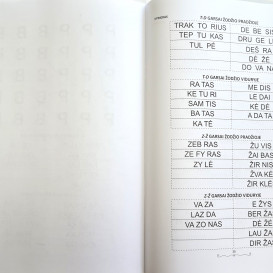 T-D GARSAI ŽODŽIO PRADŽIOJE
TRAK TO RIUS DE BE SIS
TEP TU KAS DRU GE LIS
TUL PĖ DEŠ RA
DĖ ŽĖ
DO VA NA
T-D GARSAI ŽODŽIO VIDURYJE
RA TAS ME DIS
KE TU RI LE DAI
SAM TIS KĖ DĖ
BA TAS A DA TA
KA TĖ
Z-Ž GARSAI ŽODŽIO PRADŽIOJE
ZEB RAS ŽU VIS
ZE FY RAS ŽAI BAS
ZY LĖ ŽIR NIS
ŽVA KĖ
ŽIR KLĖS
Z-Ž GARSAI ŽODŽIO VIDURYJE
VA ZA E ŽYS
LAZ DA BER ŽAS
VA ZO NAS DU ŽAI
LAU ŽAS
DIR ŽAS